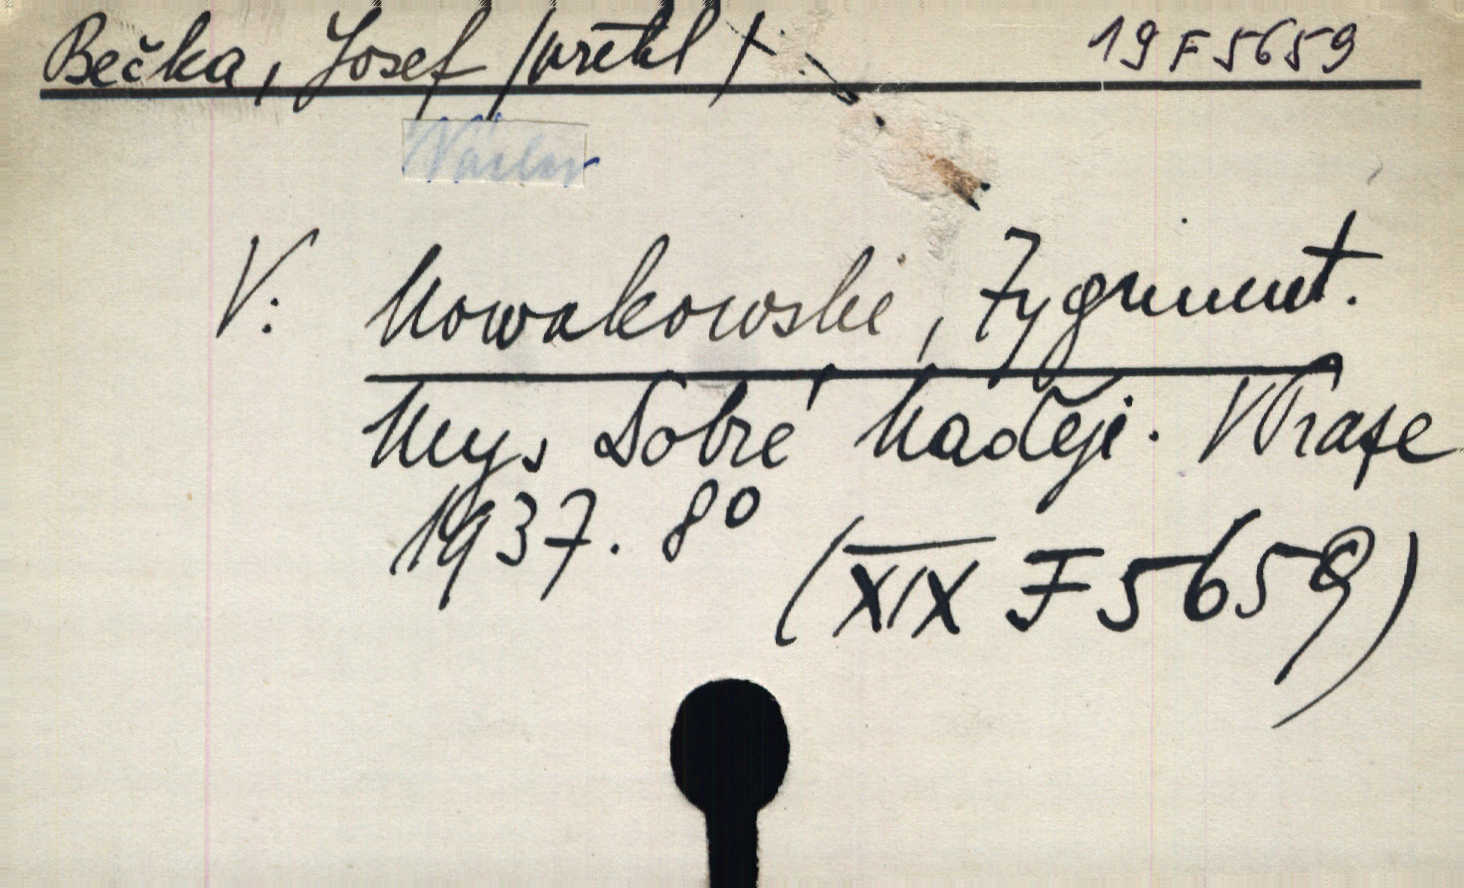 Bečka, Josef /překl/ 19 F 5659
Václav
V: Nowakowski, Zygmunt.
Mys Dobré Naděje. V Praze
1937. 8°
(XIX F 5659)